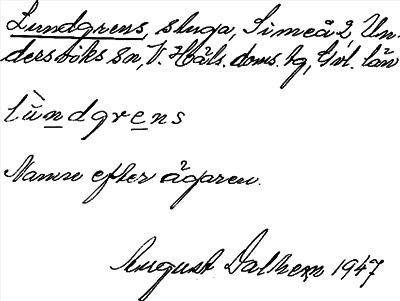 Lundgrens, sluga, Simeå 2, Un-
dersviks sn, V. Häls. doms. hg, Gvl. län
lùndgrens
Namn efter ägaren.
August Dalhem 1947